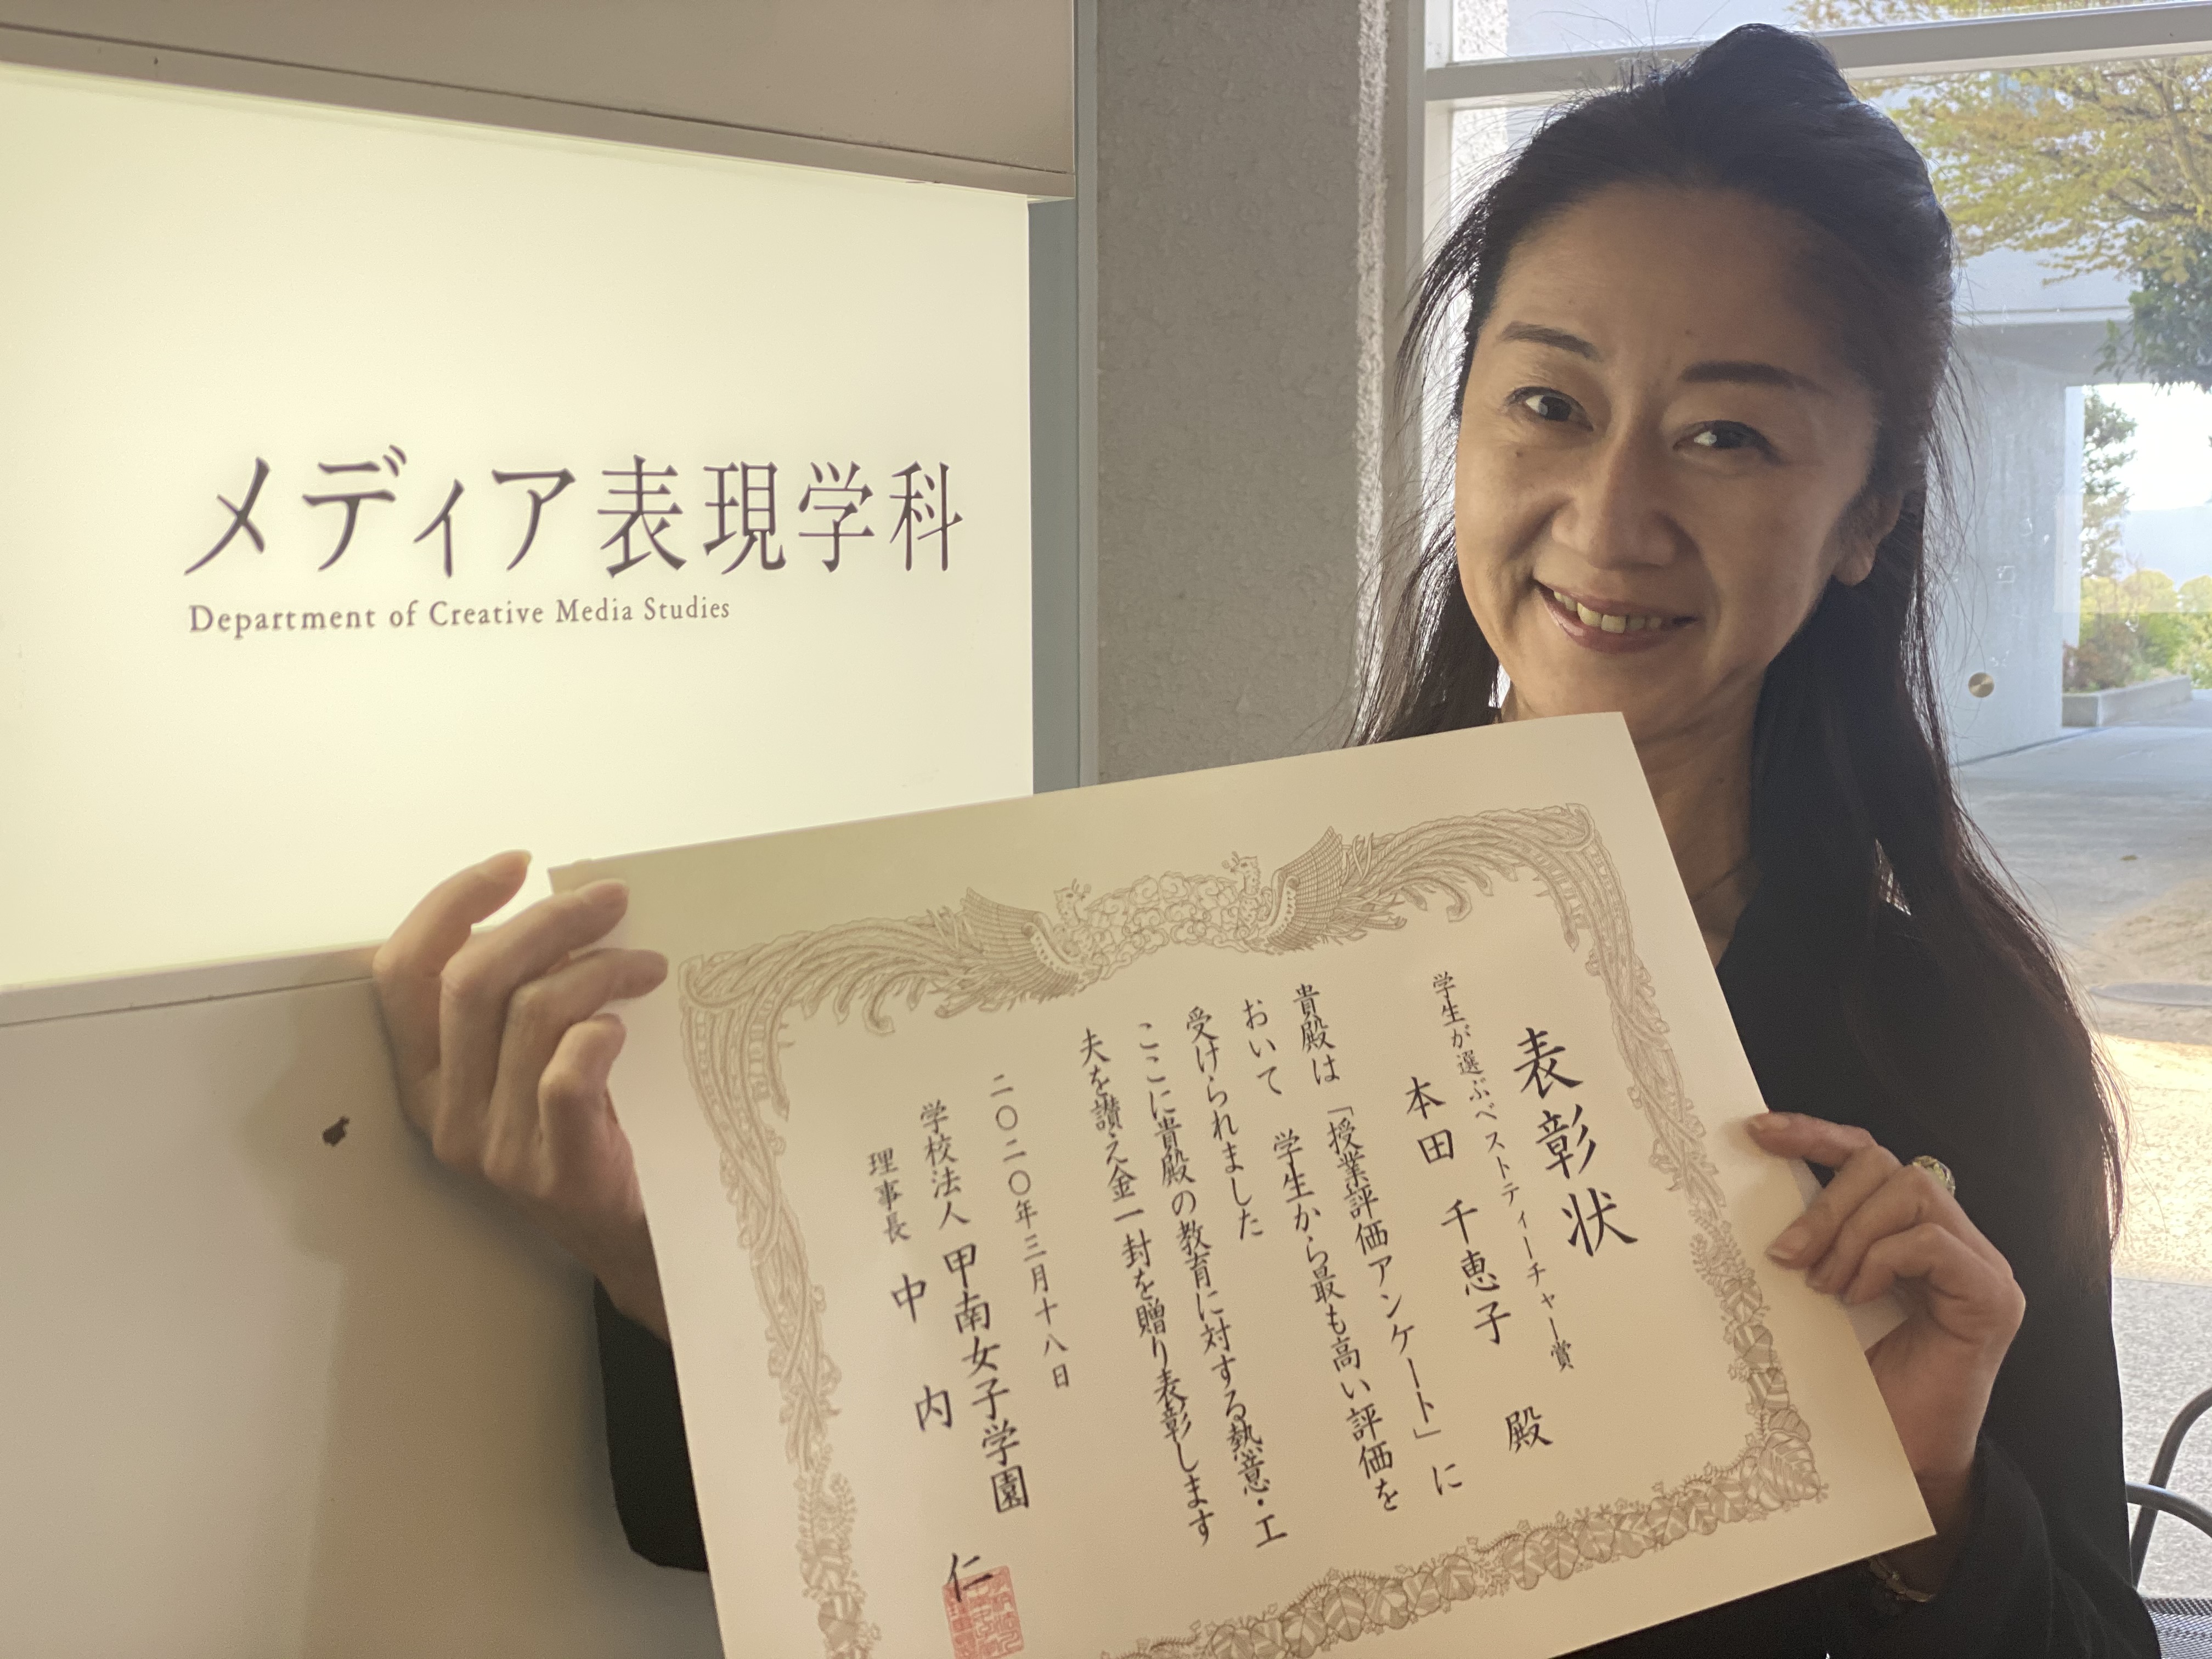 メディア表現学科
Department of Creative Media Studies
表彰状
学生が選ぶベストティーチャー賞
本田 千恵子 殿
貴殿は「授業評価アンケート」に
おいて 学生から最も高い評価を
受けられました
ここに貴殿の教育に対する熱意・工
夫を讃え金一封を贈り表彰します
二〇二〇年三月十八日
学校法人 甲南女子学園
理事長 中内 仁